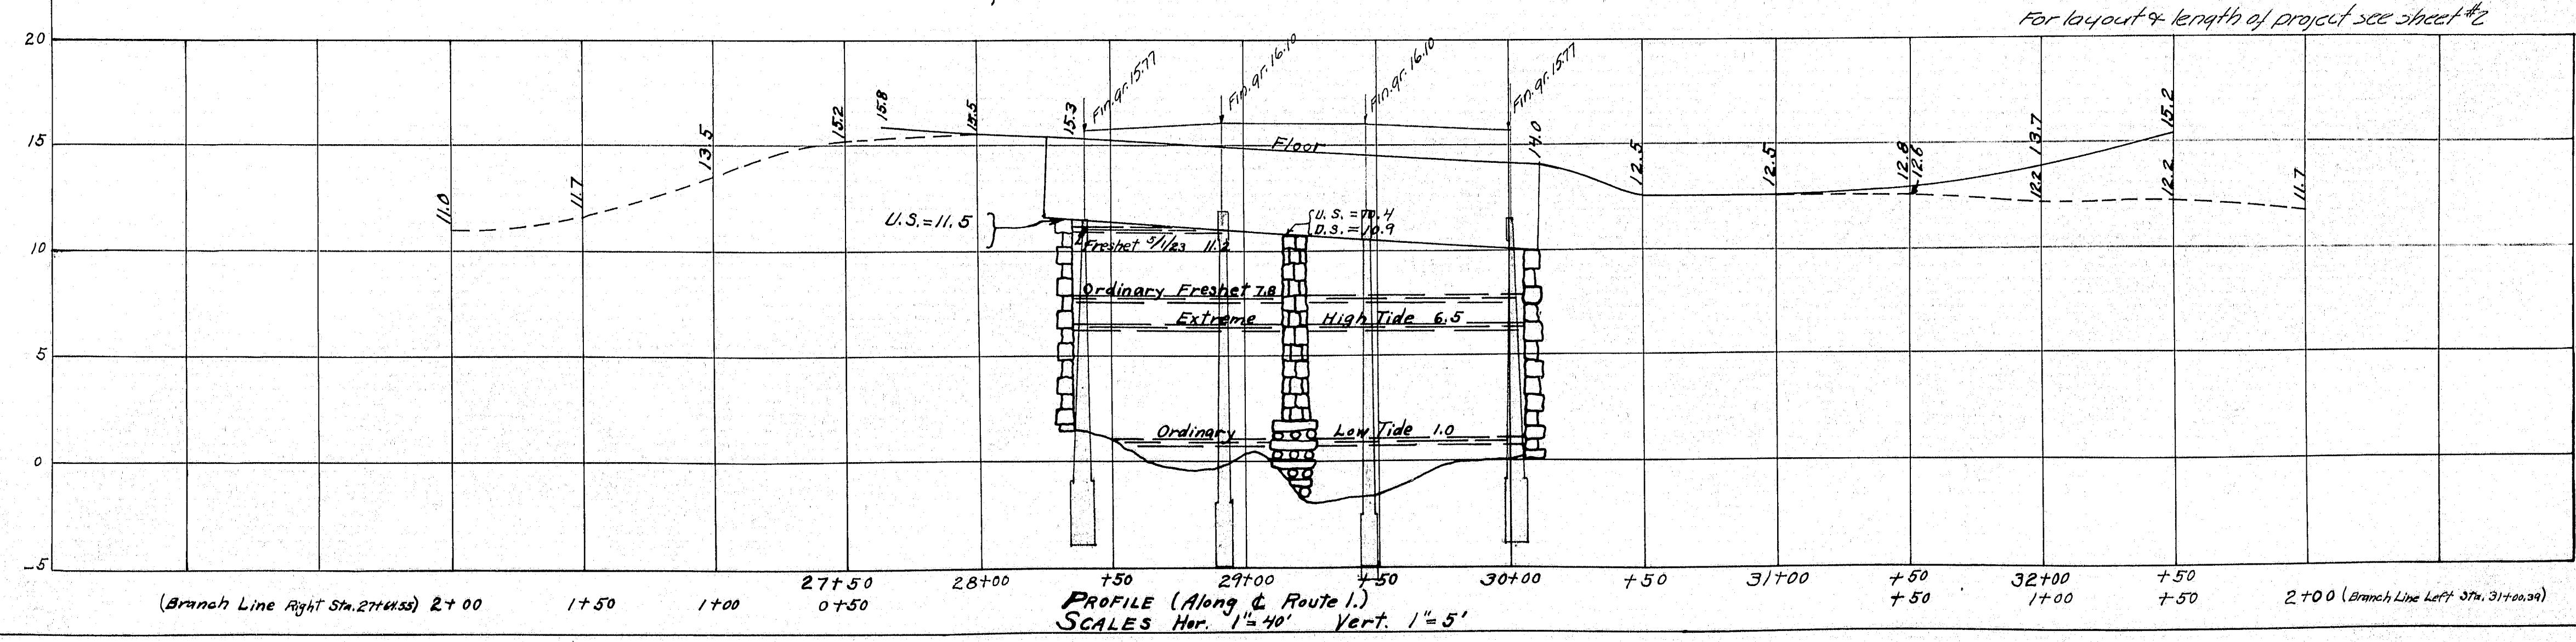 For layout & length of project see sheet #2
20
15
10
5
0
-5
11.0
11.7
13.5
15.2
15.8
15.5
15.3
Fin. gr. 15.77
Fin. gr. 16.10
Fin. gr. 16.10
Fin. gr. 15.77
14.0
12.5
12.5
12.8
12.6
13.7
12.2
15.2
12.2
11.7
Floor
U.S. = 11.5
U.S. = 10.4
D.S. = 10.9
Freshet 5/1/23 11.2
Ordinary Freshet 7.8
Extreme High Tide 6.5
Ordinary Low Tide 1.0
27+50 28+00 +50 29+00 +50 30+00 +50 31+00 +50 32+00 +50
(Branch Line Right Sta. 27+61.55) 2+00 1+50 1+00 0+50
+50 1+00 +50 2+00 (Branch Line Left Sta. 31+00.39)
PROFILE (Along ℄ Route 1.)
SCALES Hor. 1"=40' Vert. 1"=5'